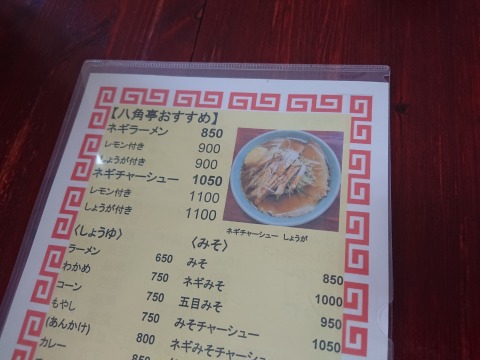 【八角亭おすすめ】
ネギラーメン 850
レモン付き 900
しょうが付き 900
ネギチャーシュー 1050
レモン付き 1100
しょうが付き 1100
ネギチャーシュー しょうが
〈しょうゆ〉
ラーメン 650
わかめ 750
コーン 750
もやし 750
(あんかけ)
カレー 800
850
〈みそ〉
みそ 850
ネギみそ 1000
五目みそ 950
みそチャーシュー 1050
ネギみそチャーシュー